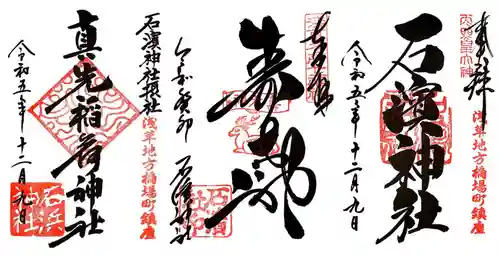 奉拝
天照皇大神
浅草地方橋場町鎮座
石濱神社
令和五年十二月九日
奉拝
寿老神
令和癸卯
石濱神社
石濱神社摂社
浅草地方橋場町鎮座
真先稲荷神社
令和五年十二月九日
石浜
神社